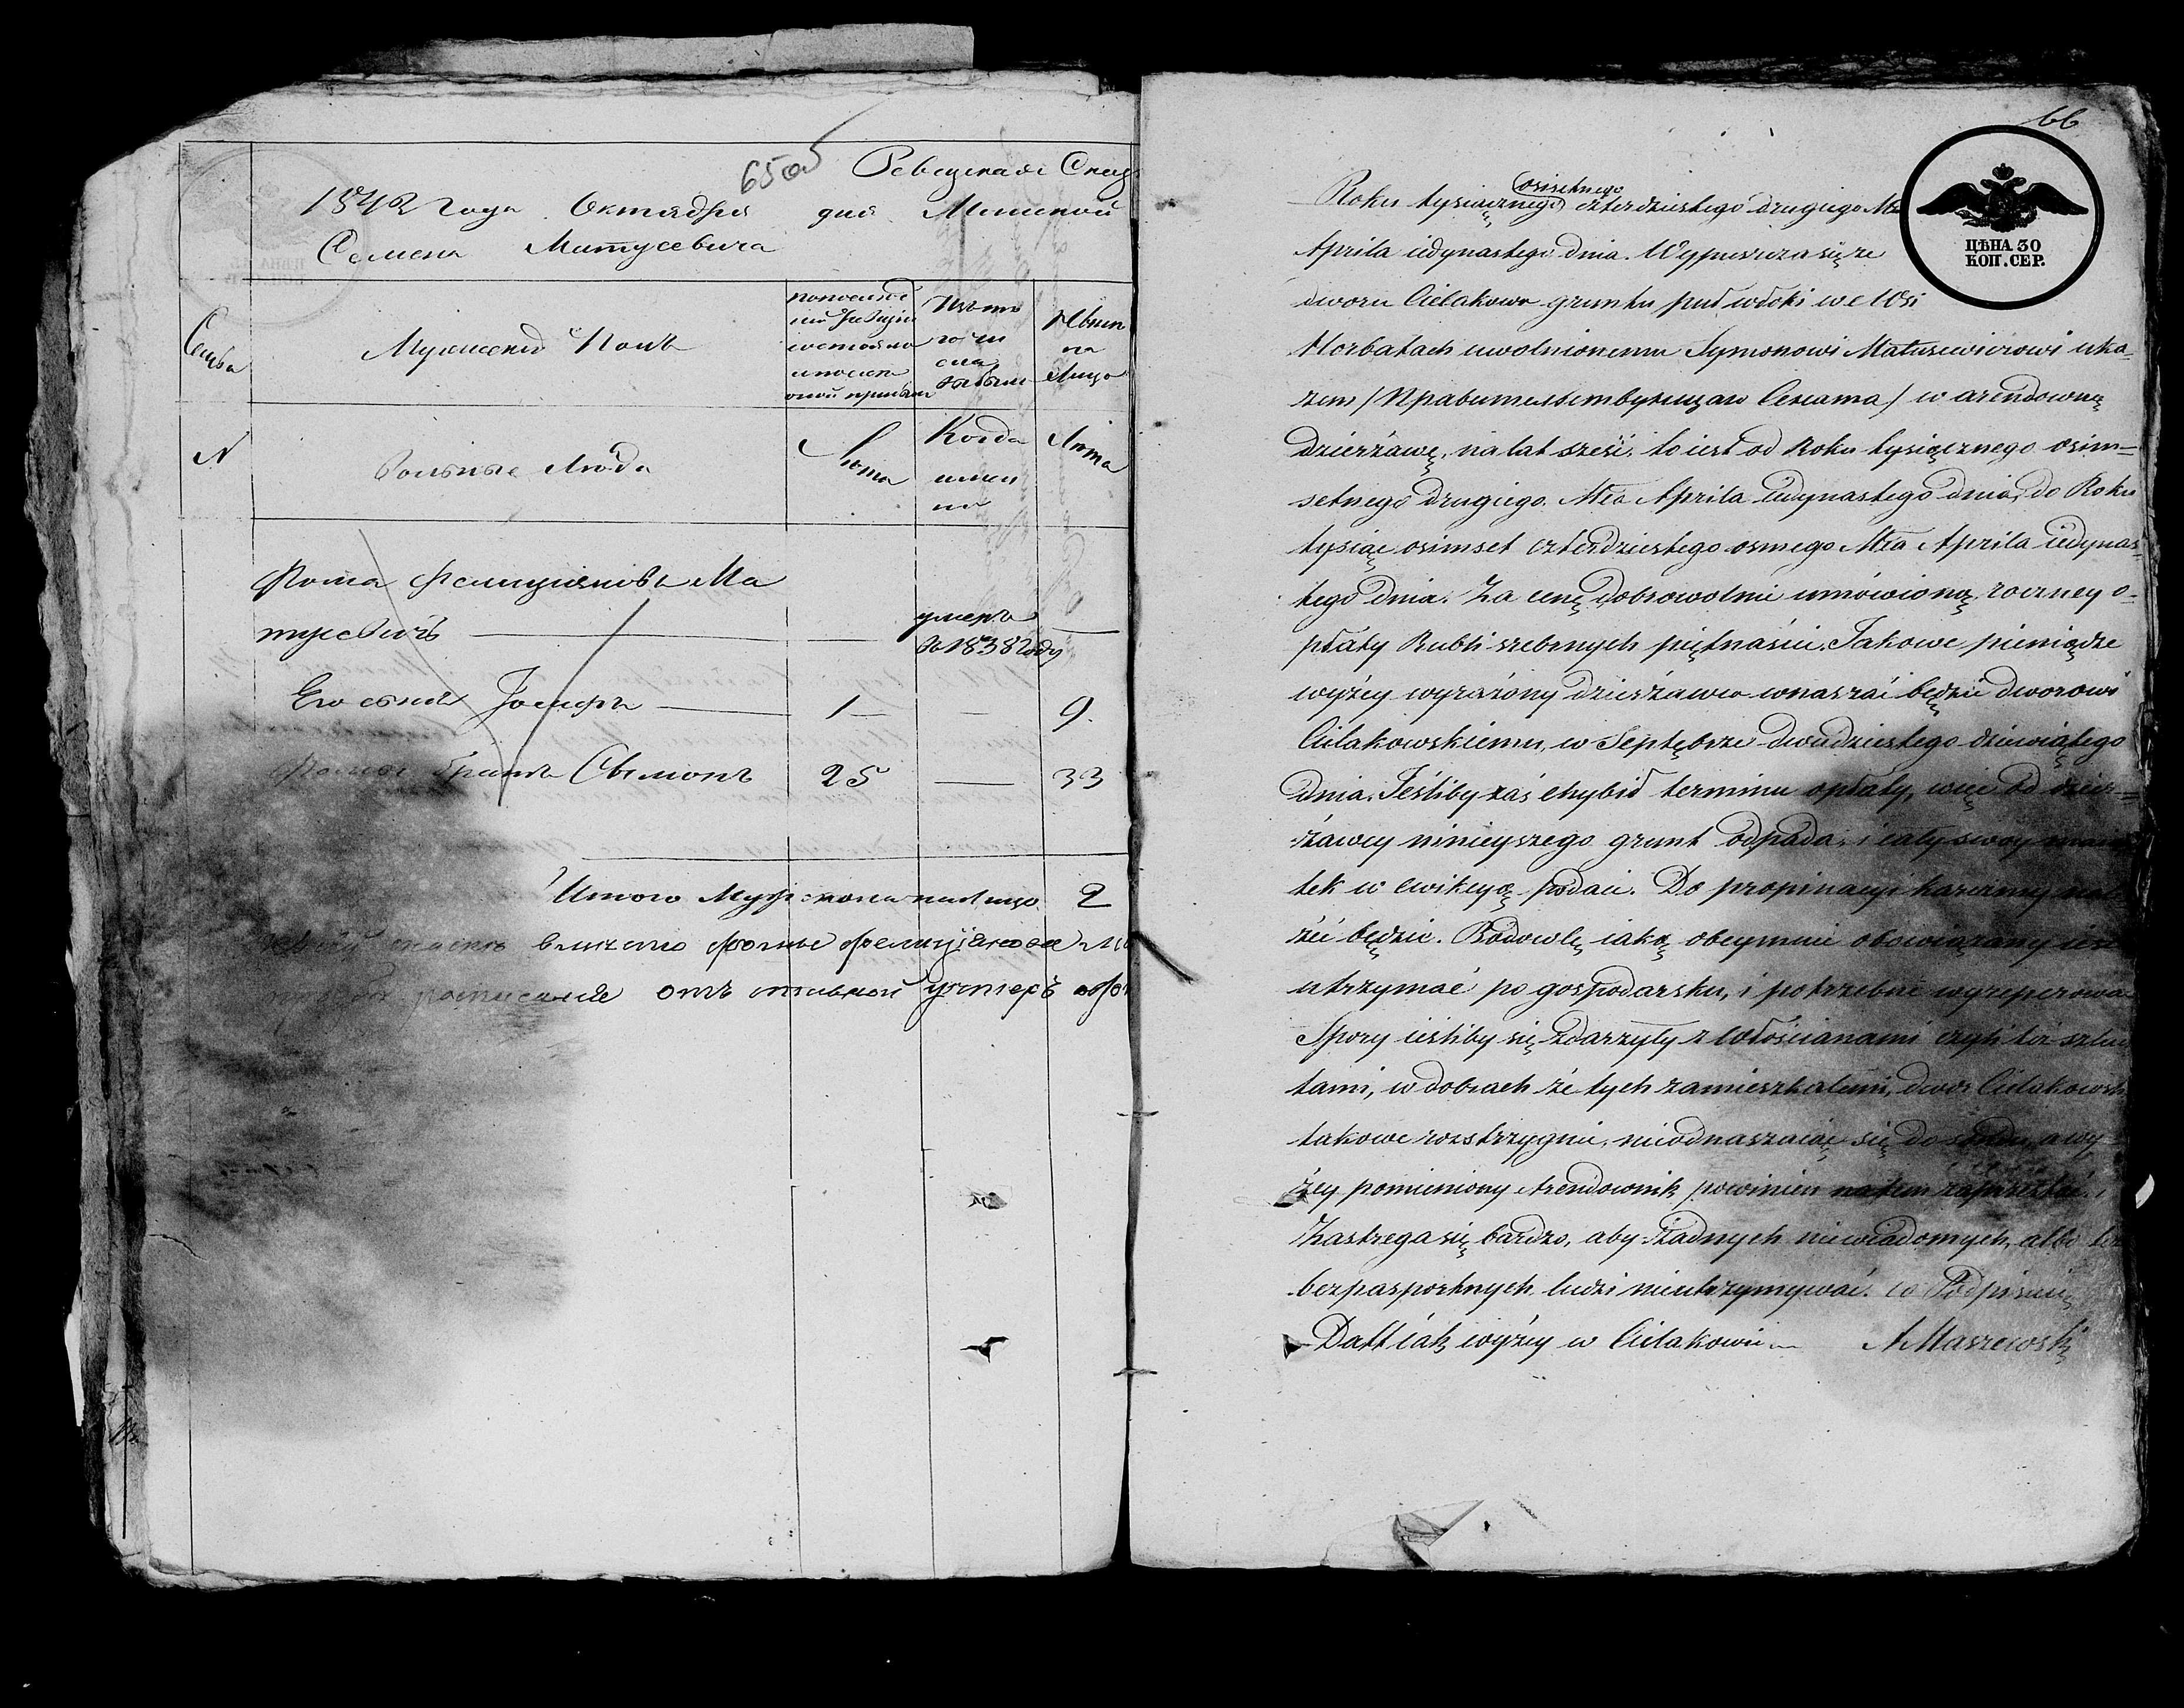 65об
Ревизская Сказ
1842 года Октября дня Минской
Семена Матусевича
Семья
Мужеский Полъ
По последней ревизии состояло и после оной прибыло
Изъ того числа выбыло
Ныне на лицо
N
Вольные Люди
Лета
Когда именно
Лета
Фома Фелициановъ Ма
тусевичъ — умеръ —
в 1838 году
Его сынъ Іосифъ — 1 — 9.
Фомы братъ Сымонъ 25 — 33
Итого Мужеска на лицо 2
Фомы Фелициянова
отъ
66
ЦѢНА 30
КОП. СЕР.
Roku tysiącznego osimsetnego czterdziestego drugiego Mca
Aprila iedynastego dnia. Wypuszcza się ze
dworu Cielakowa gruntu puł włoki we Wsi
Horbatach uwolnionemu Symonowi Matusewiczowi uka-
zem /Правительствующаго Сената/ w arendowną
dzierżawę, na lat sześć, to iest od Roku tysiącznego osim=
setnego drugiego Mca Aprila iedynastego dnia, do Roku
tysiąc osimset czterdziestego osmego Mca Aprila iedynas-
tego dnia. Za cenę dobrowolnie umówioną, roczney o-
płaty Rubli srebrnych piętnaście. Takowe pieniądze
wyżey wyrażony dzierżawca wnaszać będzie dworowi
Cielakowskiemu, w Septębrze dwudziestego dziewiątego
dnia. Jeśliby zaś chybił terminu opłaty, więc od dzier=
żawcy ninieyszego grunt odpada, i cały swoy maią
tek w ewikcyą podaie. Do propinacyi karczmy nale
żeć będzie. Budowlę iaką obeymuie obowiązany iest
utrzymać po gospodarsku, i potrzebnie wyreperować
Spory ieśliby się zdarzyły z Włościanami czyli też szlach
tami, w dobrach że tych zamieszkałemi, dwor Cielakowski
takowe rozstrzygnie, nieodnaszaiąc się do sądu, a wy=
żey pomieniony Arendownik powinien na tem zaprzestać,
Zastrzega się bardzo, aby żadnych niewiadomych, albo też
bezpasportnych ludzi nieutrzymywać. co Podpisuię
Datt iak wyżey w Cielakowie — A Maszewski